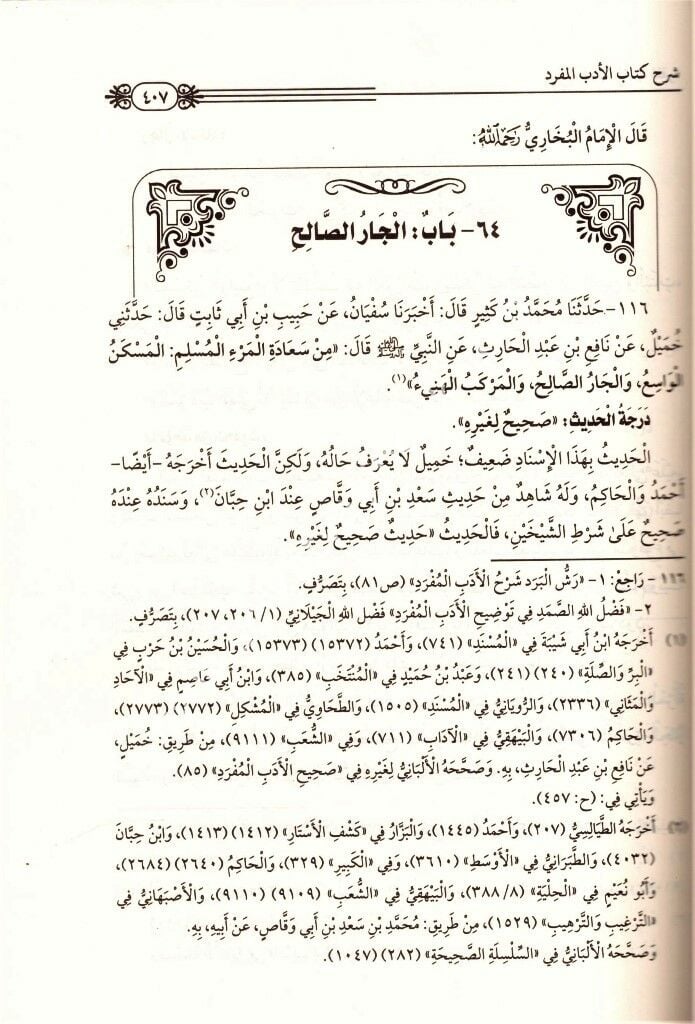 شرح كتاب الأدب المفرد
٤٠٧
قَالَ الْإِمَامُ الْبُخَارِيُّ رَحِمَهُ اللَّهُ:
٦٤- بَابٌ: الْجَارُ الصَّالِحِ
١١٦- حَدَّثَنَا مُحَمَّدُ بْنُ كَثِيرٍ قَالَ: أَخْبَرَنَا سُفْيَانُ، عَنْ حَبِيبِ بْنِ أَبِي ثَابِتٍ قَالَ: حَدَّثَنِي
خُمَيْلٌ، عَنْ نَافِعِ بْنِ عَبْدِ الْحَارِثِ، عَنِ النَّبِيِّ ﷺ قَالَ: «مِنْ سَعَادَةِ الْمَرْءِ الْمُسْلِمِ: الْمَسْكَنُ
الْوَاسِعُ، وَالْجَارُ الصَّالِحُ، وَالْمَرْكَبُ الْهَنِيءُ»(١).
دَرَجَةُ الْحَدِيثِ: «صَحِيحٌ لِغَيْرِهِ».
الْحَدِيثُ بِهَذَا الْإِسْنَادِ ضَعِيفٌ؛ خَمِيلٌ لَا يُعْرَفُ حَالُهُ، وَلَكِنَّ الْحَدِيثَ أَخْرَجَهُ -أَيْضًا-
أَحْمَدُ وَالْحَاكِمُ، وَلَهُ شَاهِدٌ مِنْ حَدِيثِ سَعْدِ بْنِ أَبِي وَقَّاصٍ عِنْدَ ابْنِ حِبَّانَ(٢)، وَسَنَدُهُ عِنْدَهُ
صَحِيحٌ عَلَىٰ شَرْطِ الشَّيْخَيْنِ، فَالْحَدِيثُ «حَدِيثٌ صَحِيحٌ لِغَيْرِهِ».
١١٦- رَاجِعْ: ١- «رَشُّ الْبَرَدِ شَرْحُ الْأَدَبِ الْمُفْرَدِ» (ص٨١)، بِتَصَرُّفٍ.
٢- «فَضْلُ اللهِ الصَّمَدِ فِي تَوْضِيحِ الْأَدَبِ الْمُفْرَدِ» فَضْل اللهِ الْجَيْلَانِيِّ (١/ ٢٠٦، ٢٠٧)، بِتَصَرُّفٍ.
(١) أَخْرَجَهُ ابْنُ أَبِي شَيْبَةَ فِي «الْمُسْنَدِ» (٧٤١)، وَأَحْمَدُ (١٥٣٧٢) (١٥٣٧٣)، وَالْحُسَيْنُ بْنُ حَرْبٍ فِي
«الْبِرِّ وَالصِّلَةِ» (٢٤٠) (٢٤١)، وَعَبْدُ بْنُ حُمَيْدٍ فِي «الْمُنْتَخَبِ» (٣٨٥)، وَابْنُ أَبِي عَاصِمٍ فِي «الْآحَادِ
وَالْمَثَانِي» (٢٣٣٦)، وَالرُّويَانِيُّ فِي «الْمُسْنَدِ» (١٥٠٥)، وَالطَّحَاوِيُّ فِي «الْمُشْكِلِ» (٢٧٧٢) (٢٧٧٣)،
وَالْحَاكِمُ (٧٣٠٦)، وَالْبَيْهَقِيُّ فِي «الْآدَابِ» (٧١١)، وَفِي «الشُّعَبِ» (٩١١١)، مِنْ طَرِيقِ: خُمَيْلٍ،
عَنْ نَافِعِ بْنِ عَبْدِ الْحَارِثِ، بِهِ. وَصَحَّحَهُ الْأَلْبَانِيُّ لِغَيْرِهِ فِي «صَحِيحِ الْأَدَبِ الْمُفْرَدِ» (٨٥).
وَيَأْتِي فِي: (ح: ٤٥٧).
(٢) أَخْرَجَهُ الطَّيَالِسِيُّ (٢٠٧)، وَأَحْمَدُ (١٤٤٥)، وَالْبَزَّارُ فِي «كَشْفِ الْأَسْتَارِ» (١٤١٢) (١٤١٣)، وَابْنُ حِبَّانَ
(٤٠٣٢)، وَالطَّبَرَانِيُّ فِي «الْأَوْسَطِ» (٣٦١٠)، وَفِي «الْكَبِيرِ» (٣٢٩)، وَالْحَاكِمُ (٢٦٤٠) (٢٦٨٤)،
وَأَبُو نُعَيْمٍ فِي «الْحِلْيَةِ» (٨/ ٣٨٨)، وَالْبَيْهَقِيُّ فِي «الشُّعَبِ» (٩١٠٩) (٩١١٠)، وَالْأَصْبَهَانِيُّ فِي
«التَّرْغِيبِ وَالتَّرْهِيبِ» (١٥٢٩)، مِنْ طَرِيقِ: مُحَمَّدِ بْنِ سَعْدِ بْنِ أَبِي وَقَّاصٍ، عَنْ أَبِيهِ، بِهِ.
وَصَحَّحَهُ الْأَلْبَانِيُّ فِي «السِّلْسِلَةِ الصَّحِيحَةِ» (٢٨٢) (١٠٤٧).